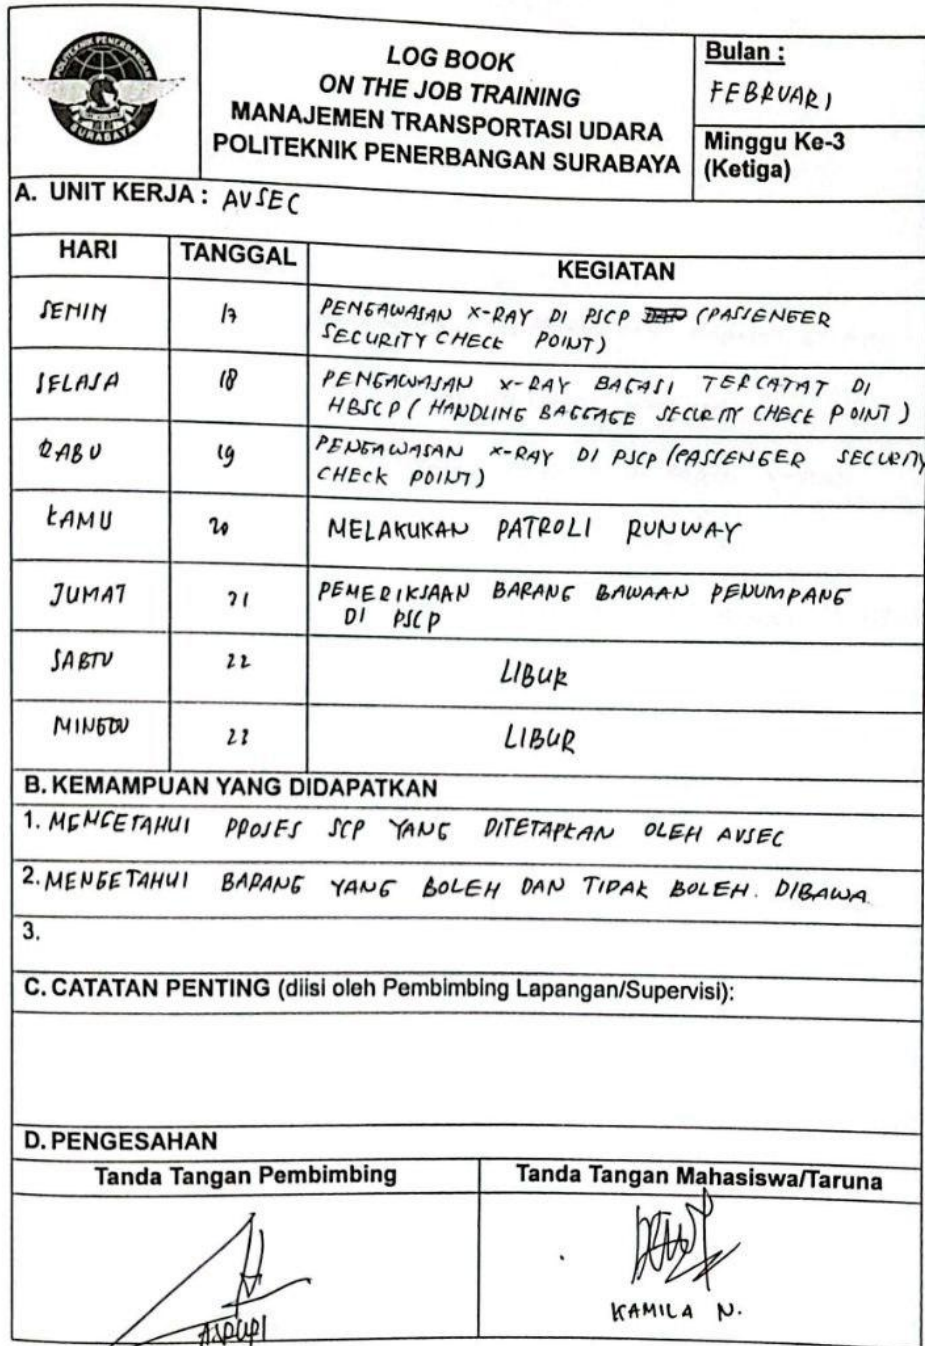 POLITEKNIK PENERBANGAN
SURABAYA
LOG BOOK
ON THE JOB TRAINING
MANAJEMEN TRANSPORTASI UDARA
POLITEKNIK PENERBANGAN SURABAYA
Bulan :
FEBRUARI
Minggu Ke-3
(Ketiga)
A. UNIT KERJA : AVSEC
HARI TANGGAL KEGIATAN
SENIN 17 PENGAWASAN X-RAY DI PSCP (PASSENGER
SECURITY CHECK POINT)
SELASA 18 PENGAWASAN X-RAY BAGASI TERCATAT DI
HBSCP (HANDLING BAGGAGE SECURITY CHECK POINT)
RABU 19 PENGAWASAN X-RAY DI PSCP (PASSENGER SECURITY
CHECK POINT)
KAMU 20 MELAKUKAN PATROLI RUNWAY
JUMAT 21 PEMERIKSAAN BARANG BAWAAN PENUMPANG
DI PSCP
SABTU 22 LIBUR
MINGGU 23 LIBUR
B. KEMAMPUAN YANG DIDAPATKAN
1. MENGETAHUI PROSES SCP YANG DITETAPKAN OLEH AVSEC
2. MENGETAHUI BARANG YANG BOLEH DAN TIDAK BOLEH. DIBAWA
3.
C. CATATAN PENTING (diisi oleh Pembimbing Lapangan/Supervisi):
D. PENGESAHAN
Tanda Tangan Pembimbing Tanda Tangan Mahasiswa/Taruna
KAMILA N.